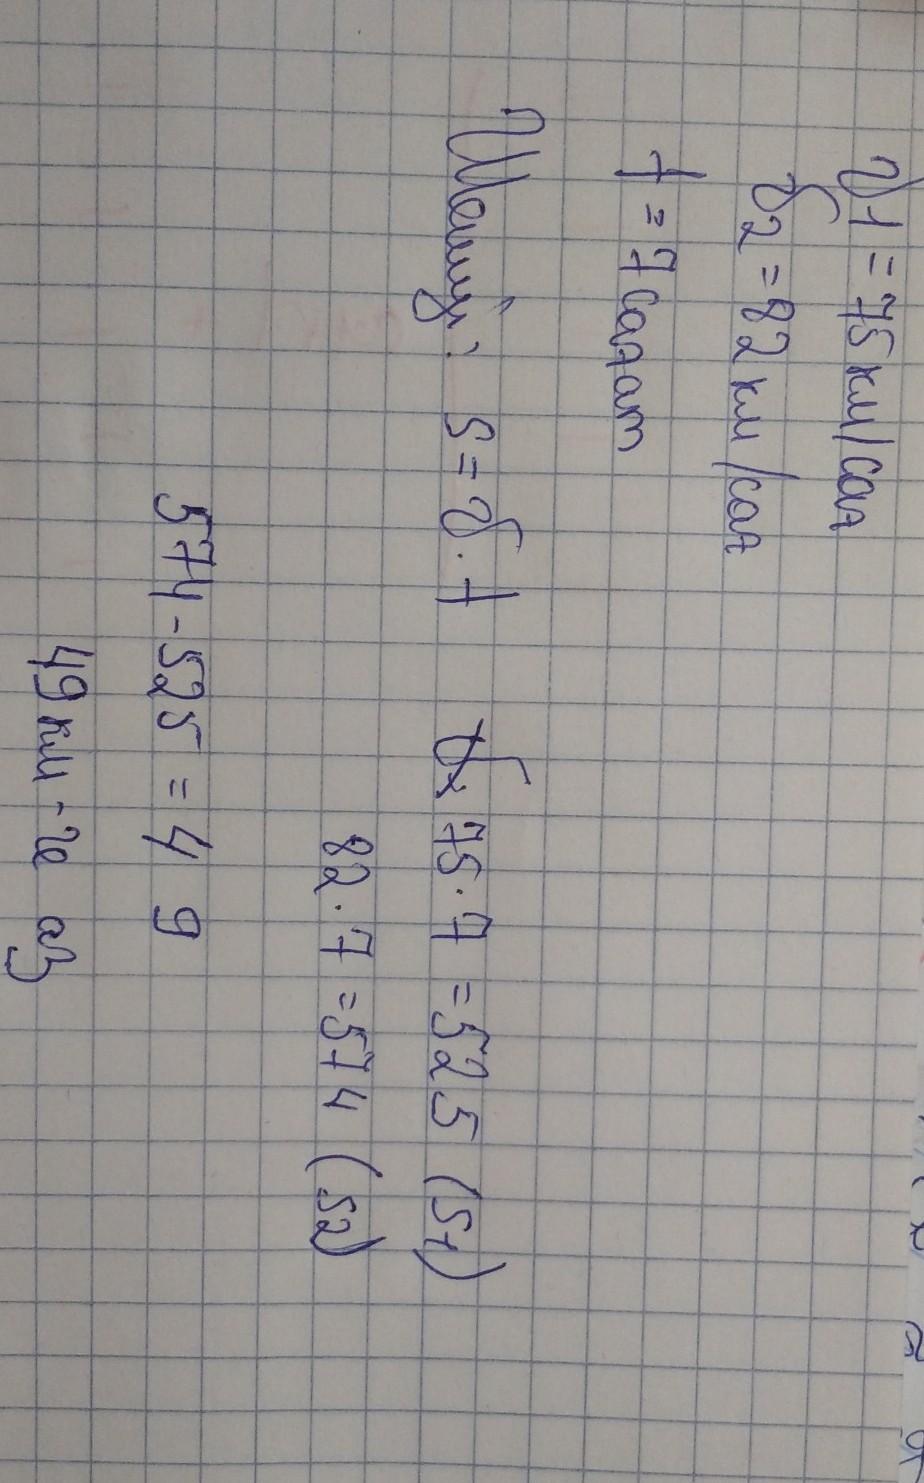 v1 = 75 км/сағ
v2 = 82 км/сағ
t = 7 сағат
Шешуі: S = v · t 75 · 7 = 525 (S1)
82 · 7 = 574 (S2)
574 - 525 = 49
49 км-ге аз